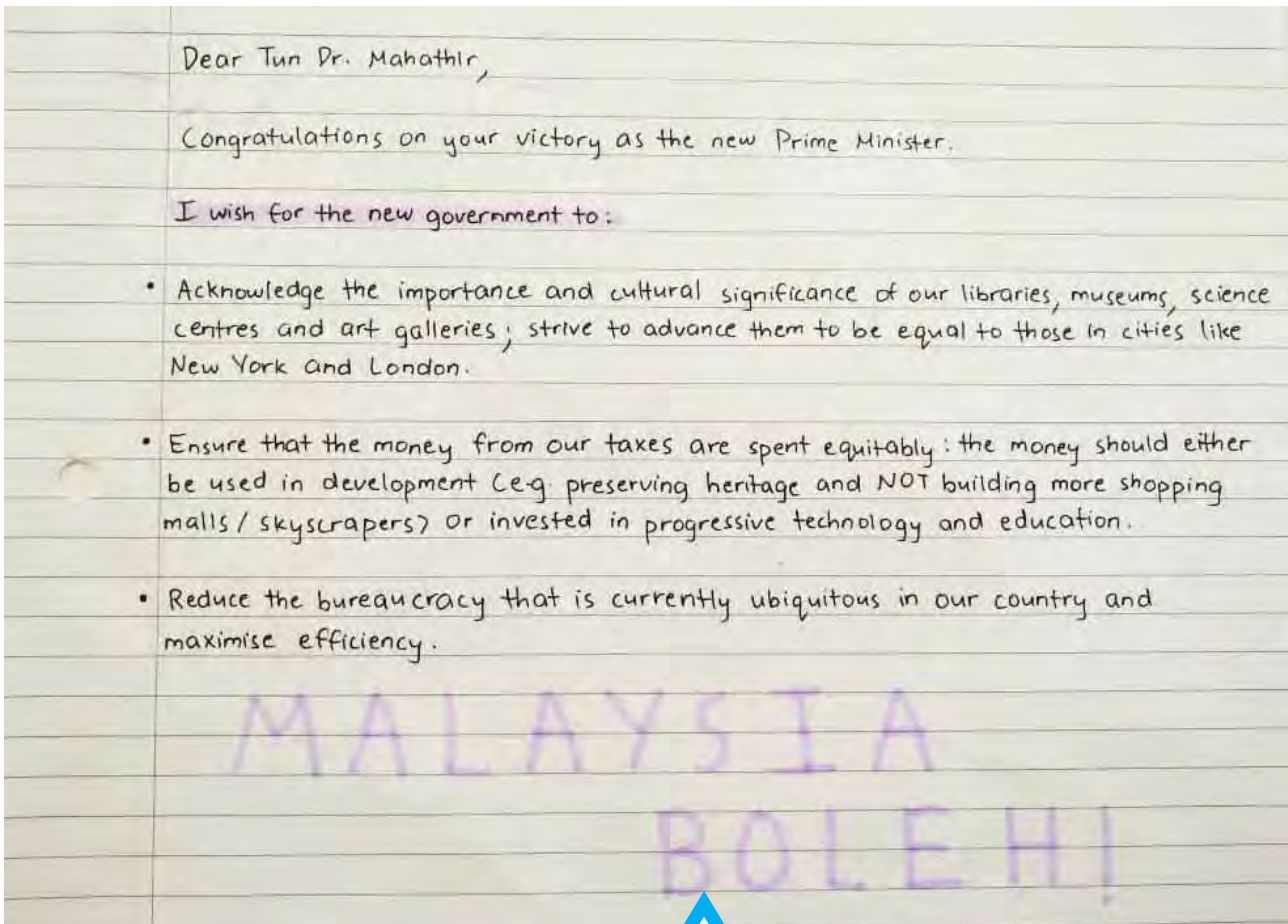 Dear Tun Dr. Mahathir,
Congratulations on your victory as the new Prime Minister.
I wish for the new government to:
• Acknowledge the importance and cultural significance of our libraries, museums, science
centres and art galleries; strive to advance them to be equal to those in cities like
New York and London.
• Ensure that the money from our taxes are spent equitably: the money should either
be used in development (e.g. preserving heritage and NOT building more shopping
malls / skyscrapers) or invested in progressive technology and education.
• Reduce the bureaucracy that is currently ubiquitous in our country and
maximise efficiency.
MALAYSIA
BOLEH!